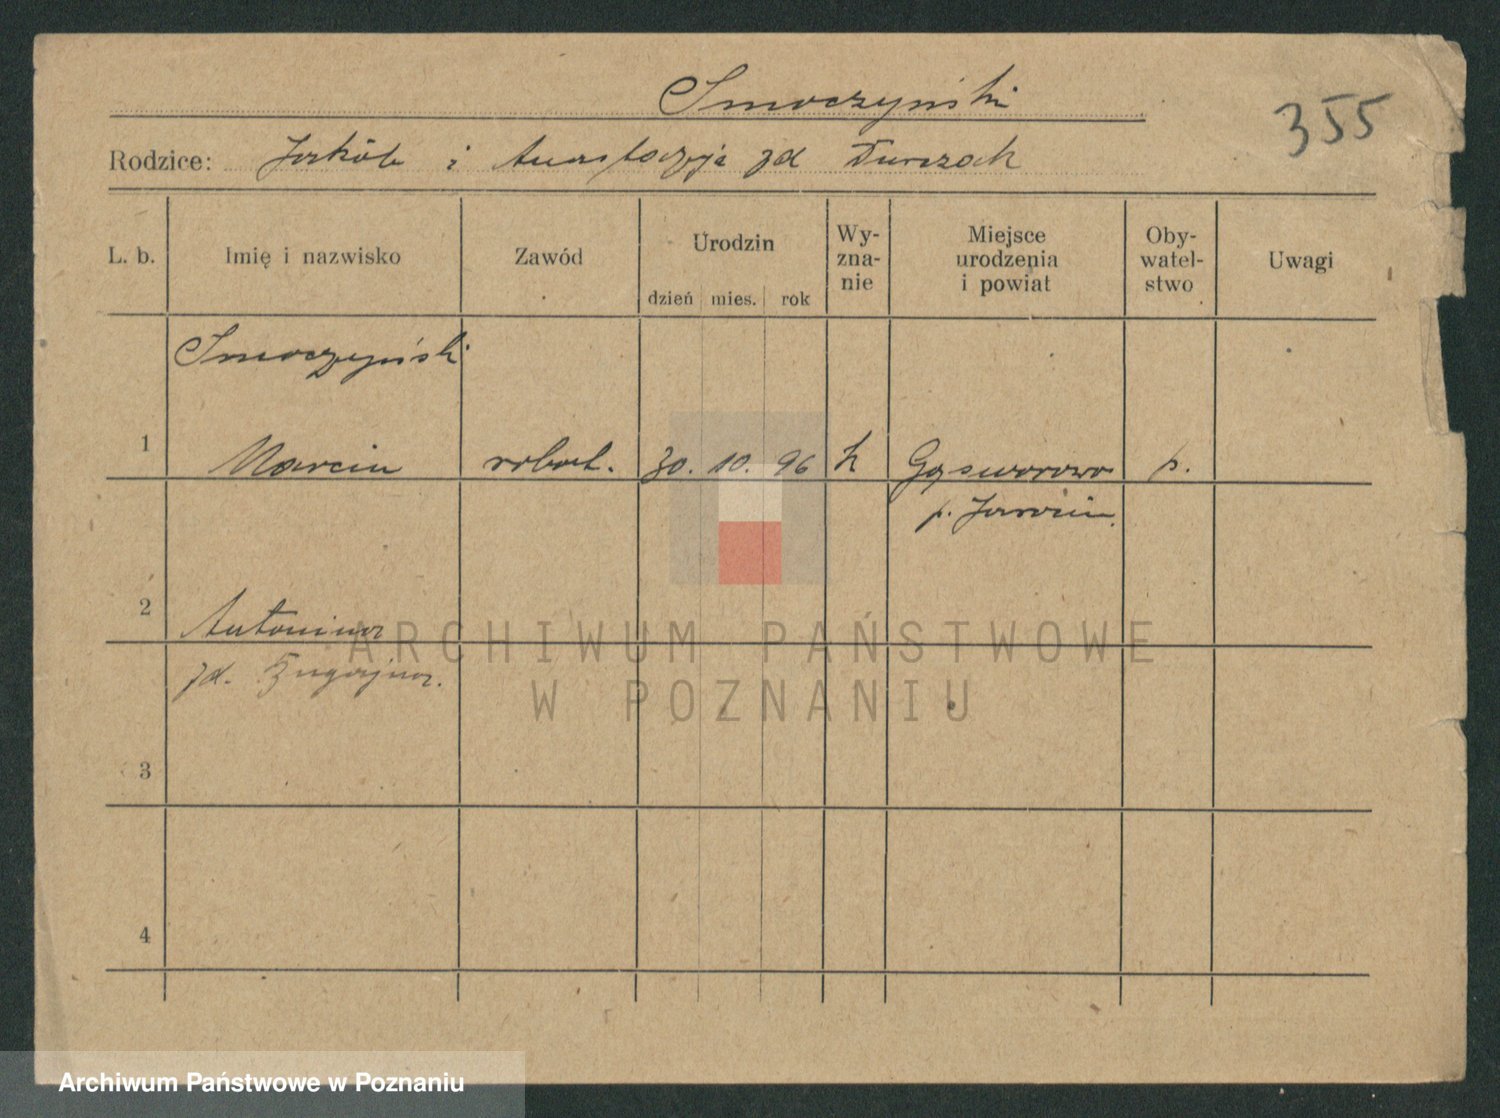 Smoczyński
355
Rodzice: Jakób i Anastazja zd Durczak
L. b.
Imię i nazwisko
Zawód
Urodzin
dzień mies. rok
Wy-
zna-
nie
Miejsce
urodzenia
i powiat
Oby-
watel-
stwo
Uwagi
Smoczyński
1 Marcin robotn. 30. 10. 96 k p.
p. Jarocin.
2 Antonina
zd.
3
4
ARCHIWUM PAŃSTWOWE
W POZNANIU
Archiwum Państwowe w Poznaniu